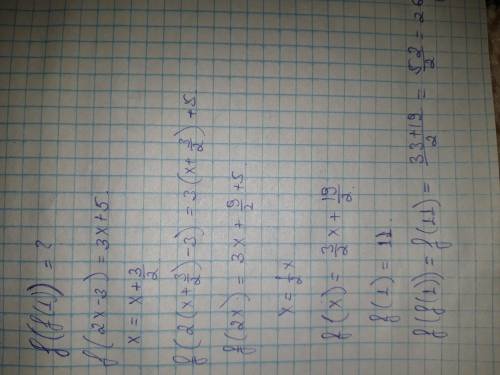 f(f(1)) = ?
f(2x-3) = 3x+5.
x = x + 3/2
f(2(x + 3/2) - 3) = 3(x + 3/2) + 5.
f(2x) = 3x + 9/2 + 5.
x = 1/2 x
f(x) = 3/2 x + 19/2.
f(1) = 11.
f(f(1)) = f(11) = (33+19)/2 = 52/2 = 26